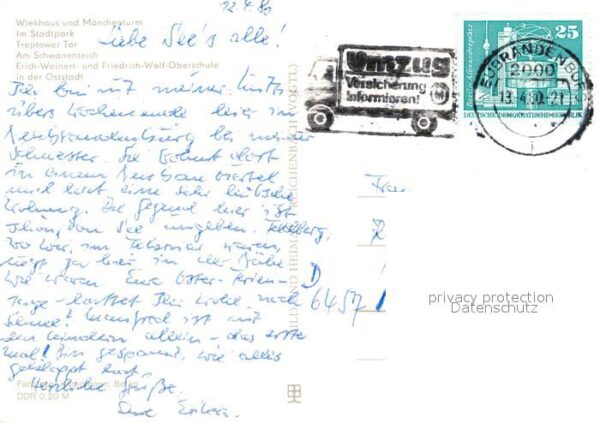 12.4.80
Wiekhaus und Mönchenturm
Im Stadtpark
Treptower Tor
Am Schwanenteich
Erich-Weinert- und Friedrich-Wolf-Oberschule
in der Oststadt
Liebe See's alle!
Ich bin mit meiner
übers Wochenende hier in
Neubrandenburg bei meiner
Schwester. Sie wohnt dort
in einem Neubauviertel
und hat eine sehr hübsche
Wohnung. Die Gegend hier ist
schön, von Seen umgeben. Feldberg,
wo wir im waren,
liegt ja hier in der Nähe
Wie waren Eure Oster-Ferien-
tage - hattet Ihr viele noch
Manfred ist mit
den Kindern allein - das erste
Mal! Bin gespannt, wie alles
geklappt hat.
Herzliche Grüße
Eure
DDR 0,20 M
BILD UND HEIMAT REICHENBACH (VOGTL)
Umzug
Versicherung
informieren!
NEUBRANDENBURG
2000
13.4.80.21
25
Berlin, Alexanderplatz
DEUTSCHE DEMOKRATISCHE REPUBLIK
Frau
D
6457
privacy protection
Datenschutz